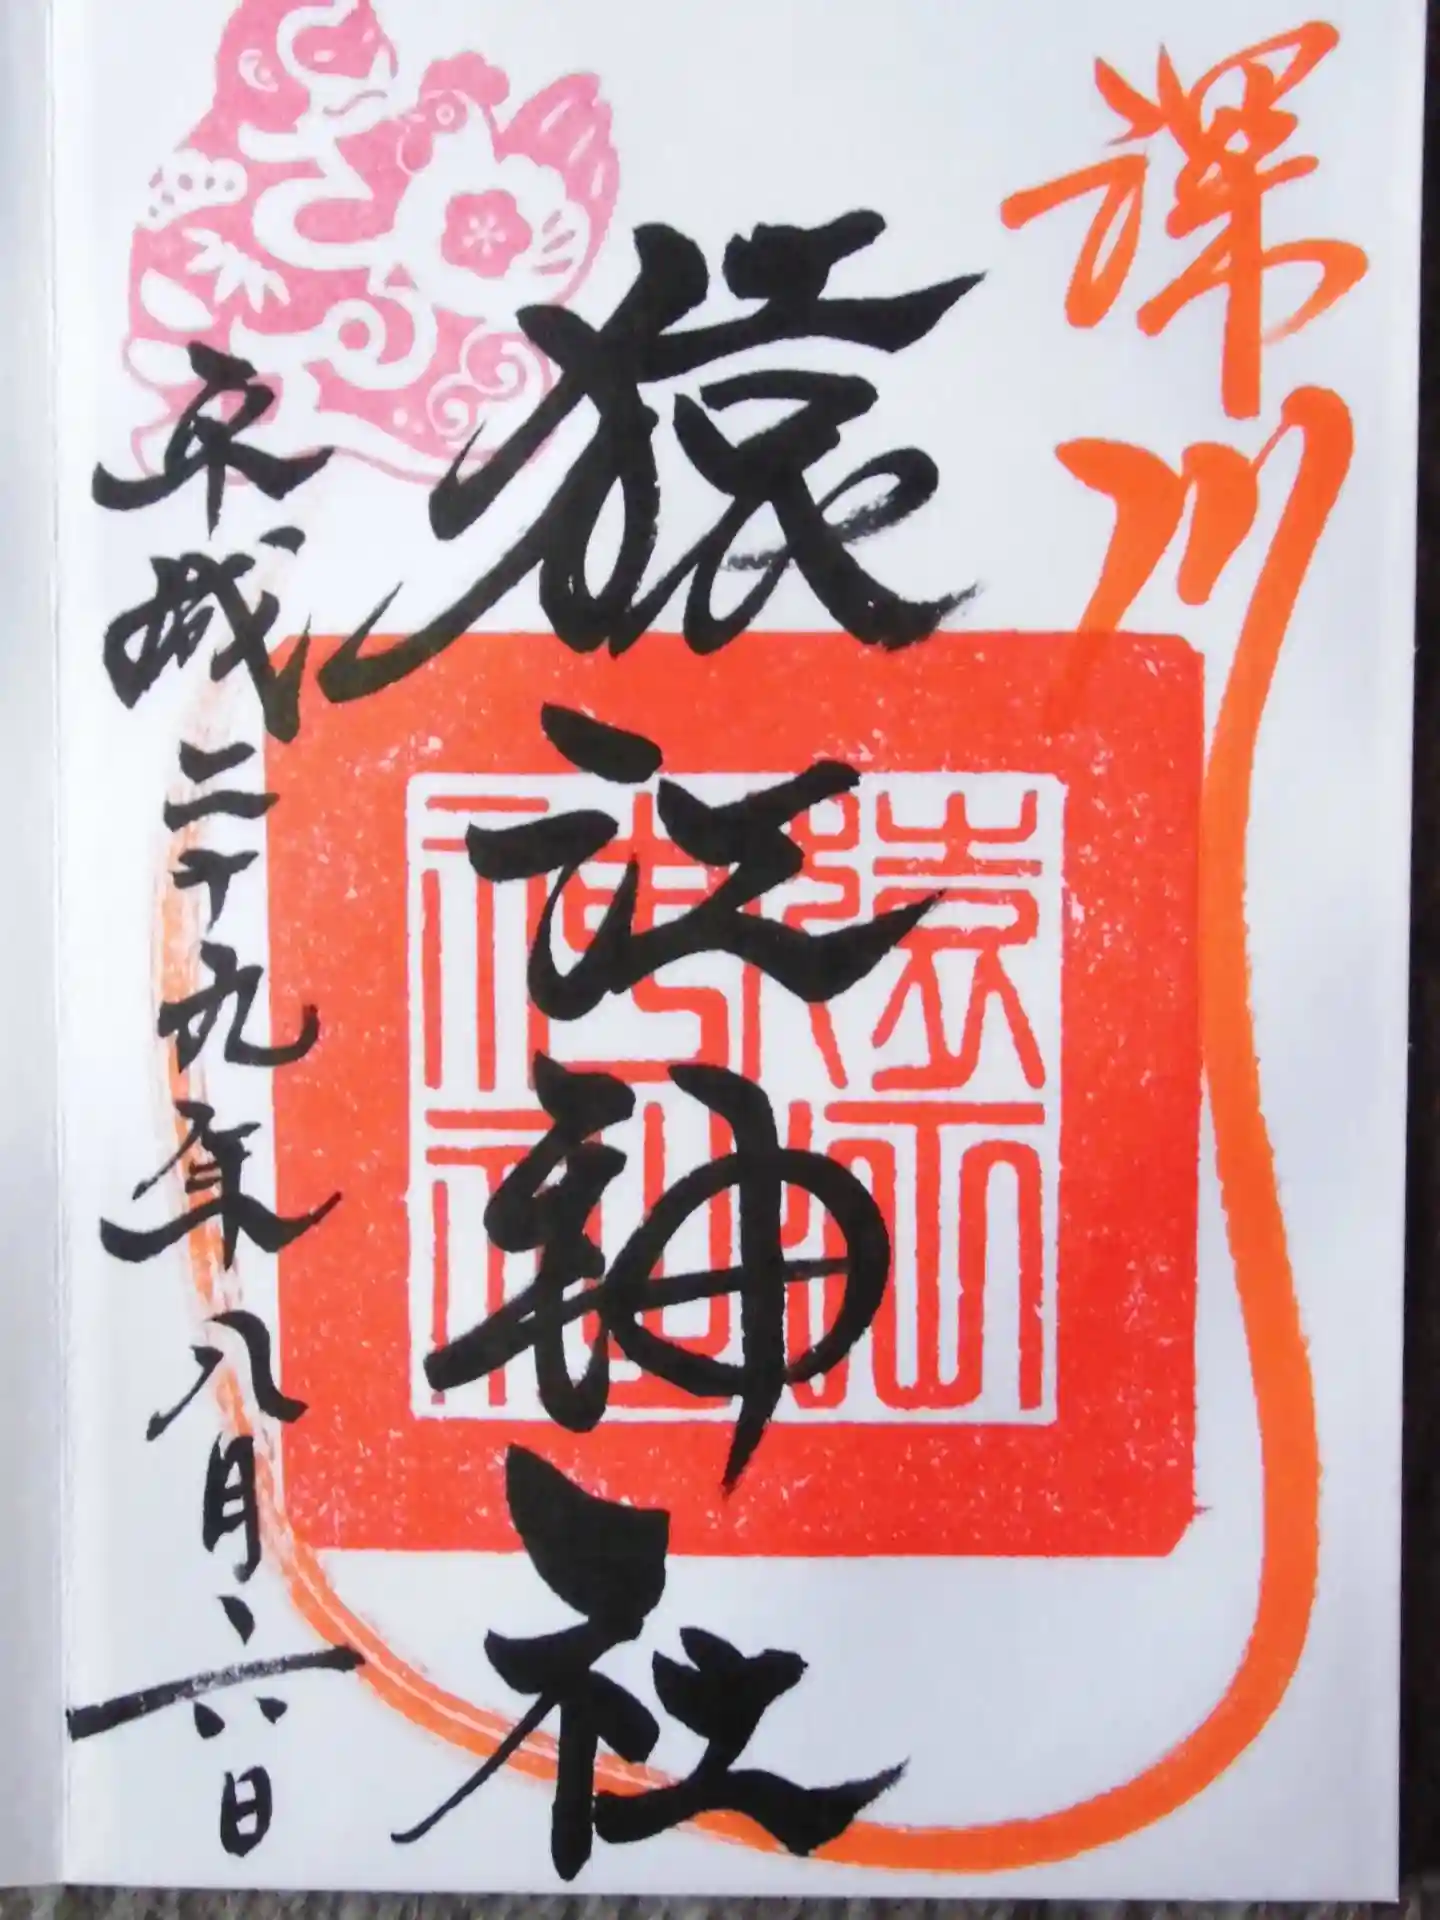 深川
猿江神社
猿江神社
平成二十九年八月六日